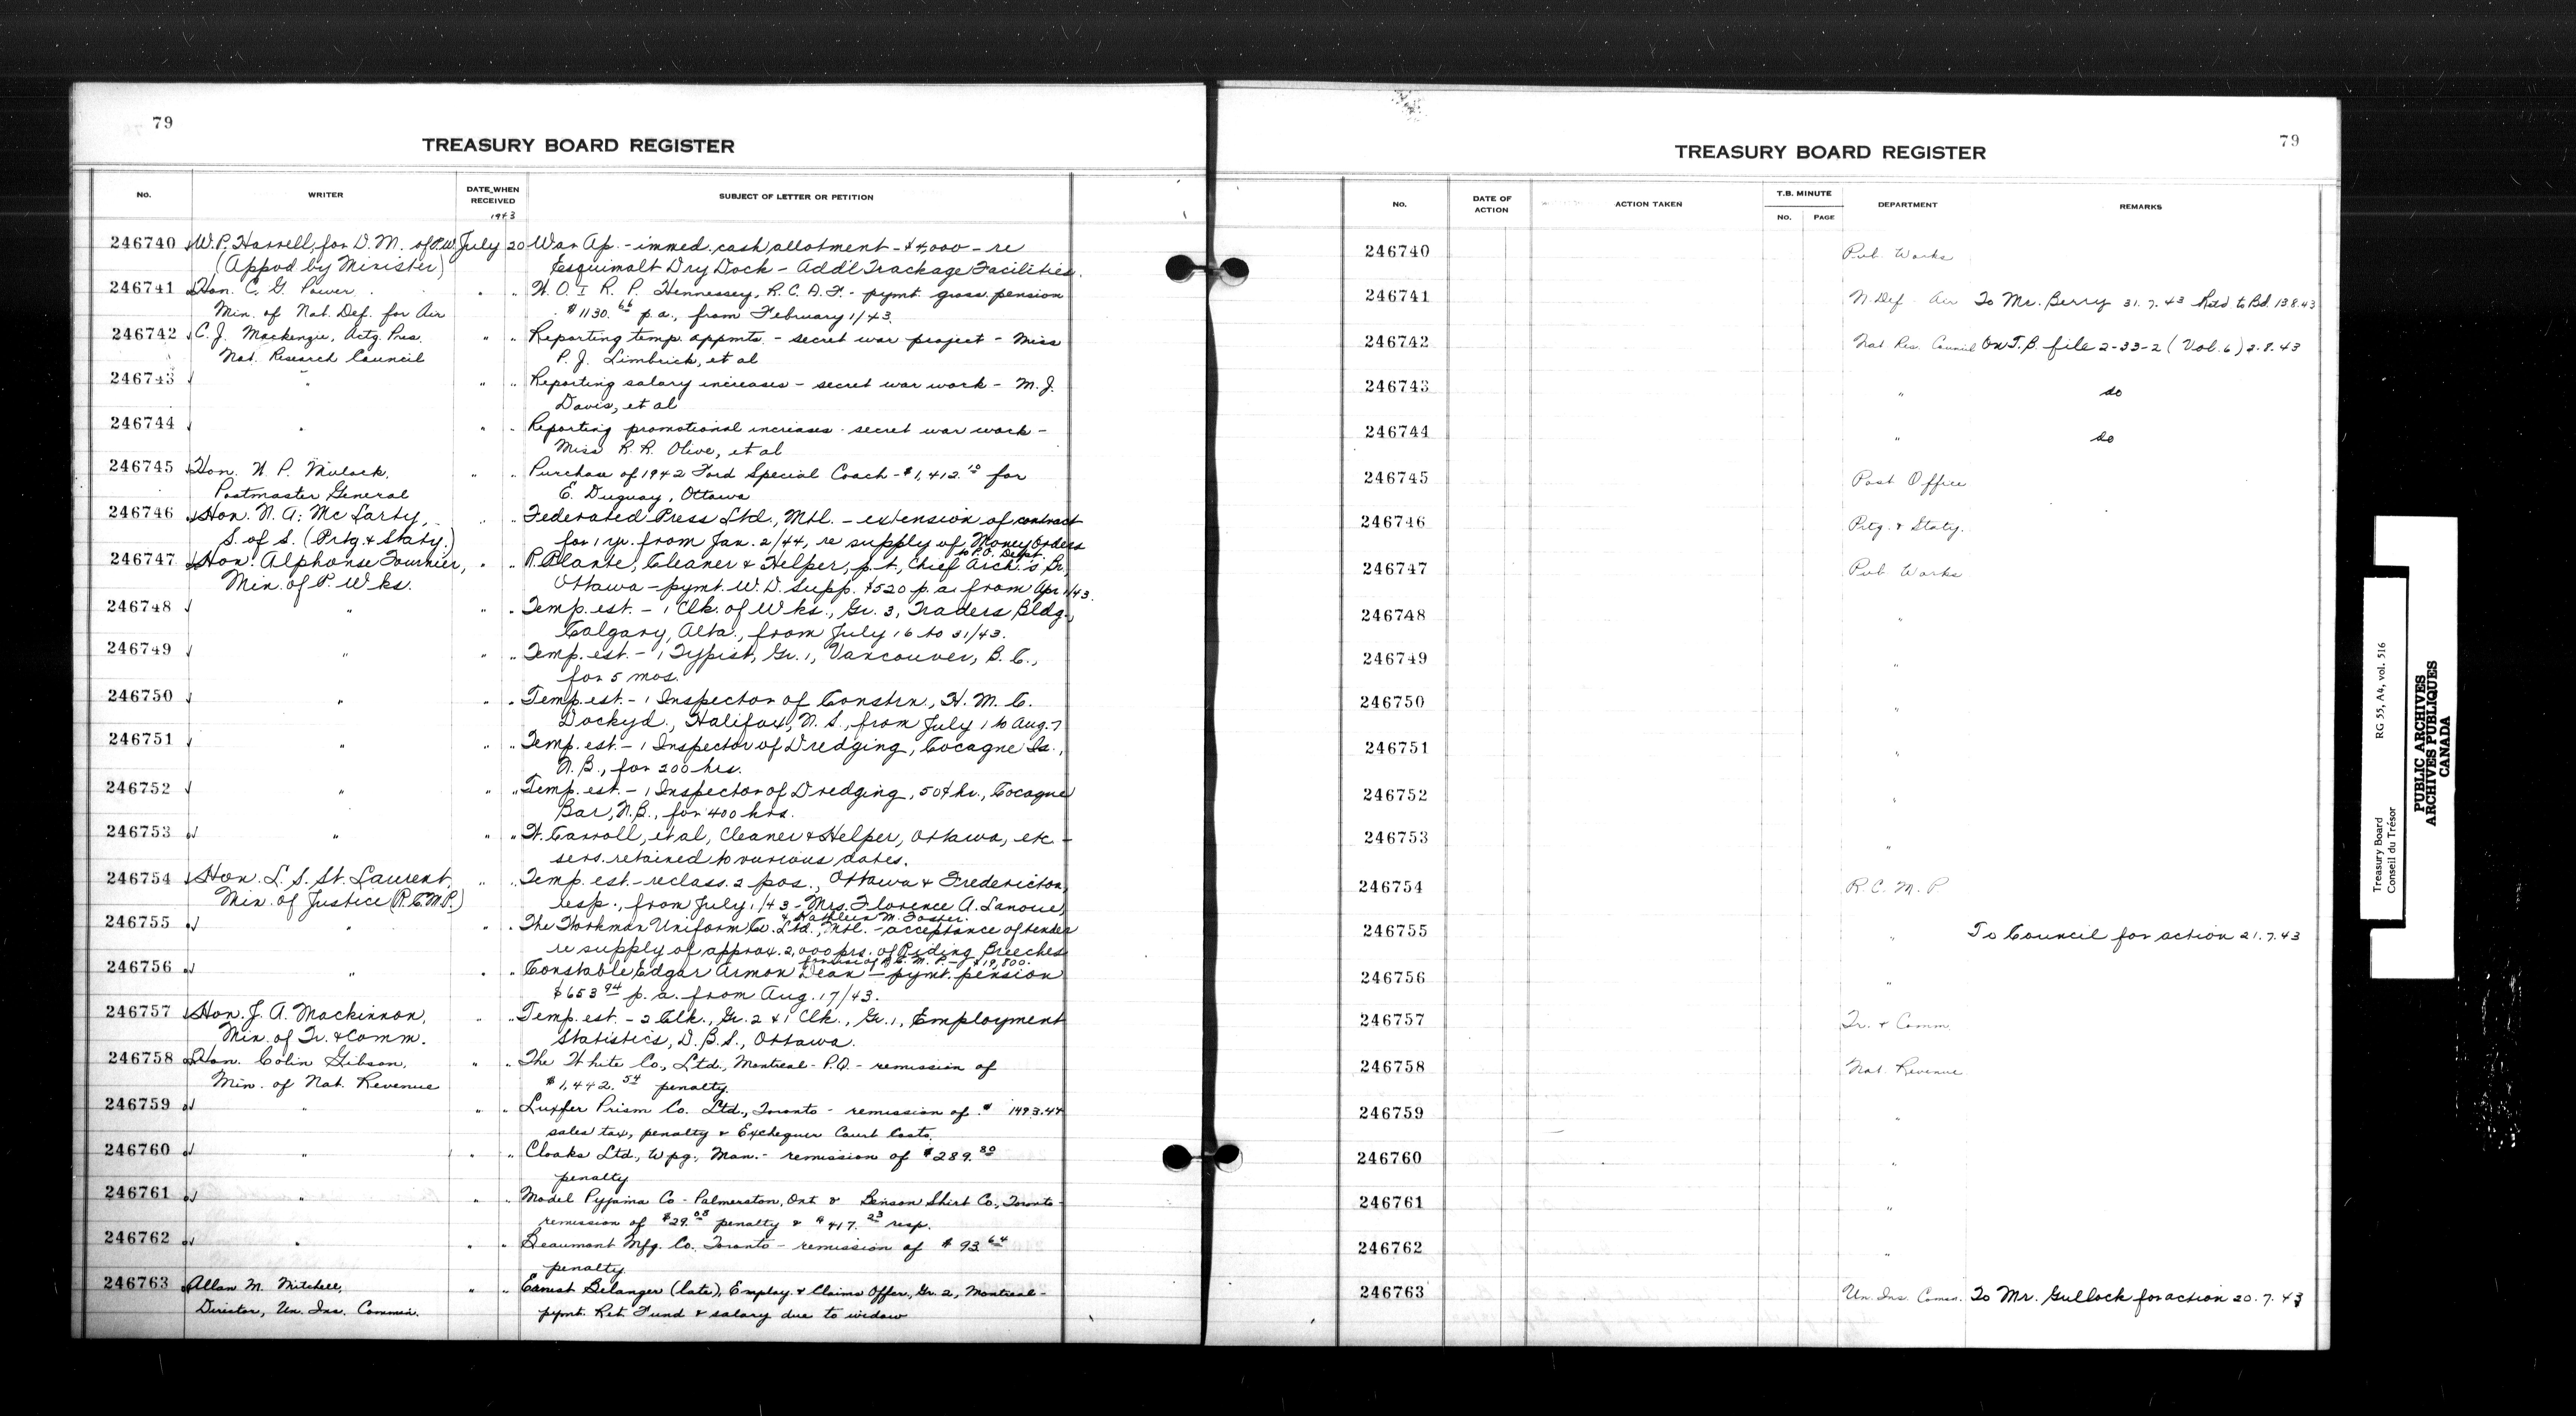 79
TREASURY BOARD REGISTER
No.
WRITER
DATE WHEN RECEIVED
SUBJECT OF LETTER OR PETITION
1943
246740 W.P. Harrell, for D.M. of P.W. July 20 War Ap. - immed. cash allotment - $4,000 - re
(Appvd by Minister) Esquimalt Dry Dock - Add'l Trackage Facilities.
246741 Hon. C. G. Power " " W. O. I R. P. Hennessey, R.C.A.F. - pymt. gross pension
Min. of Nat. Def. for Air $1130.66 p.a., from February 1/43.
246742 C. J. Mackenzie, Actg. Pres. " " Reporting temp. appmts. - secret war project - Miss
Nat. Research Council P. J. Limbrick, et al
246743 " " " Reporting salary increases - secret war work - M. J.
Davis, et al
246744 " " " Reporting promotional increases - secret war work -
Miss R. R. Olive, et al
246745 Hon. W. P. Mulock, " " Purchase of 1942 Ford Special Coach - $1,412.10 for
Postmaster General E. Duguay, Ottawa
246746 Hon. N. A. McLarty, " " Federated Press Ltd., Mtl. - extension of contract
S. of S. (Prtg & Staty.) for 1 yr. from Jan. 2/44, re supply of Money Orders
to P.O. Dept.
246747 Hon. Alphonse Fournier, " " R. Plante, Cleaner & Helper, p.t., Chief Arch.'s Br.,
Min. of P. Wks. Ottawa - pymt. W.D. Supp. $520 p.a. from Apr 1/43.
246748 " " " Temp. est. - 1 Clk. of Wks., Gr. 3, Traders Bldg.,
Calgary, Alta., from July 16 to 31/43.
246749 " " " Temp. est. - 1 Typist, Gr. 1, Vancouver, B. C.,
for 5 mos.
246750 " " " Temp. est. - 1 Inspector of Constrn., H. M. C.
Dockyd., Halifax, N. S., from July 1 to Aug. 7
246751 " " " Temp. est. - 1 Inspector of Dredging, Cocagne Is.,
N. B., for 200 hrs.
246752 " " " Temp. est. - 1 Inspector of Dredging, 50¢ hr., Cocagne
Bar, N.B., for 400 hrs.
246753 " " " W. Carroll, et al, Cleaner & Helper, Ottawa, etc -
sers. retained to various dates.
246754 Hon. L. S. St. Laurent, " " Temp. est. - reclass. 2 pos., Ottawa & Fredericton,
Min. of Justice (R.C.M.P.) resp., from July 1/43 - Mrs. Florence A. Lanoue,
& Kathleen M. Foster.
246755 " " " The Workman Uniform Co. Ltd., Mtl. - acceptance of tender
re supply of approx. 2,000 prs. of Riding Breeches
for use of R.C.M.P. - $19,800.
246756 " " " Constable Edgar Armon Dean - pymt. pension
$653.94 p.a. from Aug. 17/43.
246757 Hon. J. A. Mackinnon, " " Temp. est. - 2 Clk., Gr. 2 & 1 Clk., Gr. 1, Employment
Min. of Tr. & Comm. Statistics, D.B.S., Ottawa.
246758 Hon. Colin Gibson, " " The White Co., Ltd., Montreal - P.Q. - remission of
Min. of Nat. Revenue $1,442.54 penalty.
246759 " " " Luxfer Prism Co. Ltd., Toronto - remission of $ 1493.44
sales tax, penalty & Exchequer Court Costs.
246760 " " " Cloaks Ltd., Wpg., Man. - remission of $289.80
penalty
246761 " " " Model Pyjama Co - Palmerston, Ont & Benson Shirt Co., Toronto -
remission of $29.08 penalty & $417.23 resp.
246762 " " " Beaumont Mfg. Co. Toronto - remission of $93.64
penalty.
246763 Allan M. Mitchell, " " Ernest Belanger (late), Employ. & Claims Offcr, Gr. 2, Montreal -
Director, Un. Ins. Commn. pymt. Ret. Fund & salary due to widow
79
TREASURY BOARD REGISTER
No.
DATE OF ACTION
ACTION TAKEN
T.B. MINUTE
No.
PAGE
DEPARTMENT
REMARKS
246740 Pub. Works
246741 N. Def. Air To Mr. Berry 31.7.43 Retd to Bd. 13.8.43
246742 Nat. Res. Council On T.B. file 2-33-2 (Vol. 6) 2.8.43
246743 " do
246744 " do
246745 Post Office
246746 Prtg. & Staty.
246747 Pub Works
246748 "
246749 "
246750 "
246751 "
246752 "
246753 "
246754 R. C. M. P
246755 " To Council for action 21.7.43
246756 "
246757 Tr. & Comm.
246758 Nat. Revenue
246759 "
246760 "
246761 "
246762 "
246763 Un. Ins. Comm. To Mr. Gullock for action 20.7.43
Treasury Board
Conseil du Trésor
RG 55, A4, vol. 516
PUBLIC ARCHIVES
ARCHIVES PUBLIQUES
CANADA